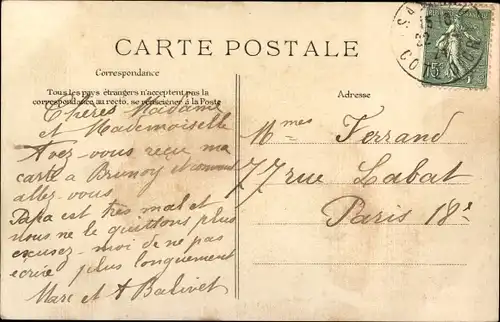 CARTE POSTALE
Correspondance
Tous les pays étrangers n'acceptent pas la
correspondance au recto, se renseigner à la Poste
Adresse
Chères Madame
et Mademoiselle
Avez-vous reçu ma
carte a Brunoy et comment
allez-vous
Papa est très mal et
nous ne le quittons plus
excusez-moi de ne pas
écrire plus longuement
Marc et A Balivet
Mmes Ferrand
77 rue Labat
Paris 18e
15